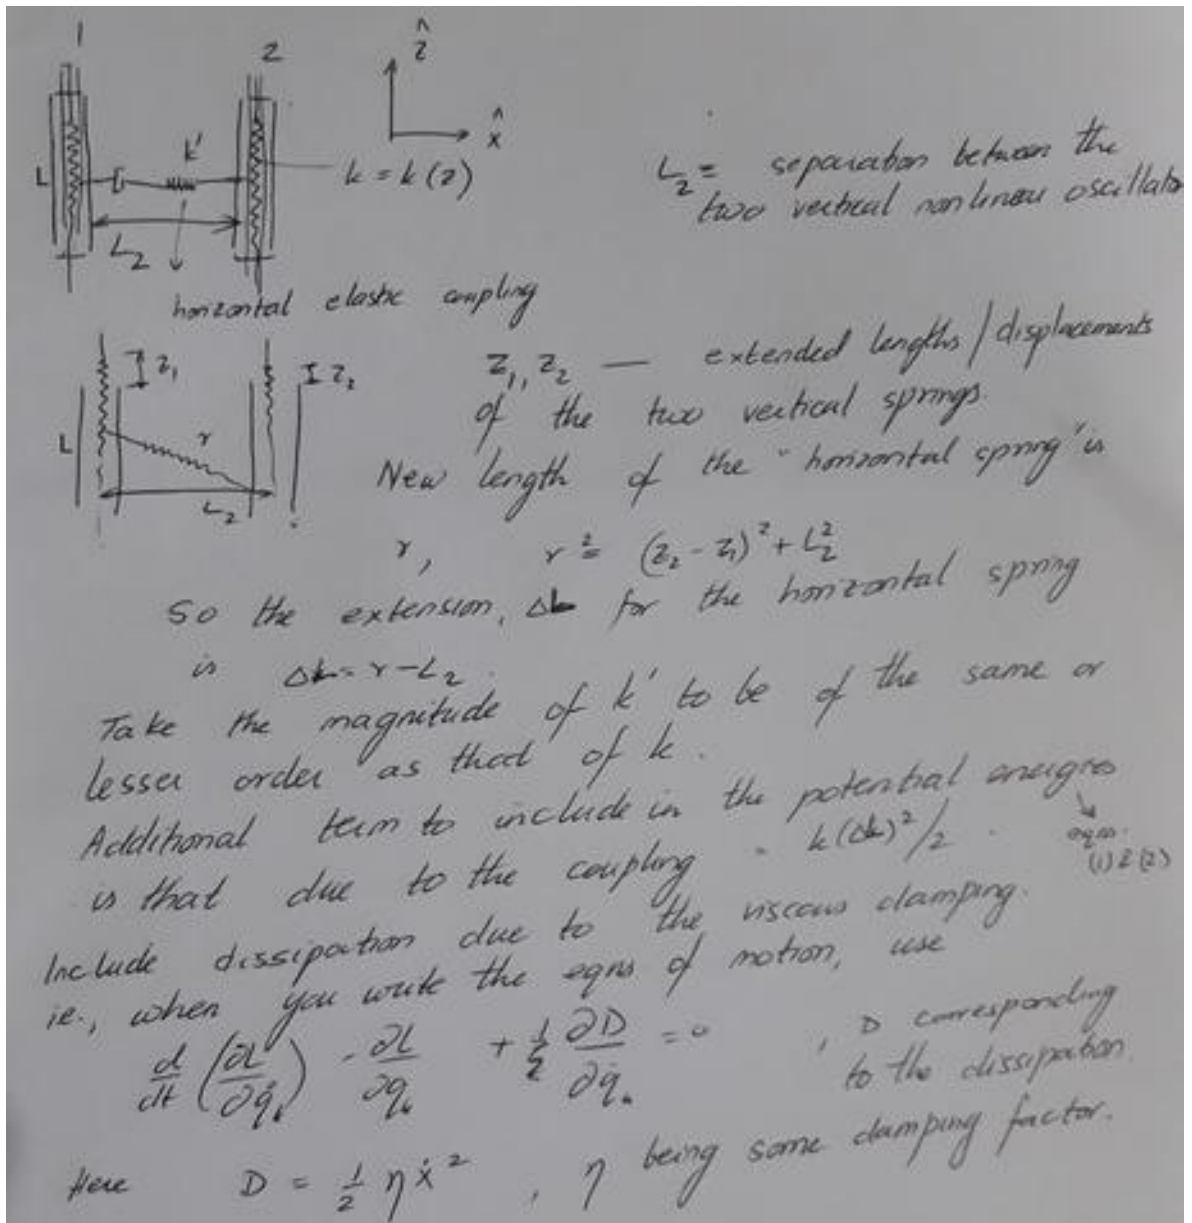 1
2
ẑ
x̂
k'
L
k = k(z)
L₂
L₂ = separation between the
two vertical nonlinear oscillato
horizontal elastic coupling
z₁
z₂
L
r
L₂
z₁, z₂ — extended lengths / displacements
of the two vertical springs.
New length of the "horizontal spring" is
r, r² = (z₂ - z₁)² + L₂²
So the extension, ΔL for the horizontal spring
is ΔL = r - L₂.
Take the magnitude of k' to be of the same or
lesser order as that of k.
Additional term to include in the potential energies
→ eqns. (1) & (2)
is that due to the coupling = k(ΔL)²/2.
Include dissipation due to the viscous damping.
ie., when you write the eqns of motion, use
d/dt (∂L/∂q̇) - ∂L/∂q + 1/2 ∂D/∂q̇ = 0 , D corresponding
to the dissipation.
Here D = 1/2 η ẋ² , η being some damping factor.